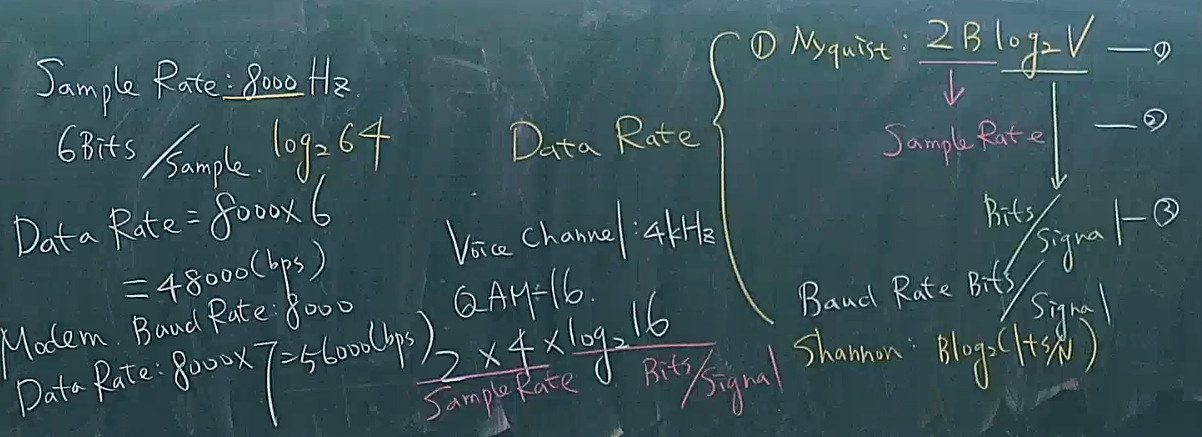 Sample Rate: 8000 Hz.
6 Bits / Sample. log₂64
Data Rate = 8000 × 6
= 48000 (bps)
Modem. Baud Rate: 8000
Data Rate: 8000 × 7 = 56000 (bps)
Voice Channel: 4kHz
QAM-16.
2 × 4 × log₂16
Sample Rate Bits/Signal
Data Rate
① Nyquist: 2B log₂V — ①
Sample Rate — ②
Bits/Signal — ③
Baud Rate Bits/Signal
Shannon: B log₂(1+S/N)